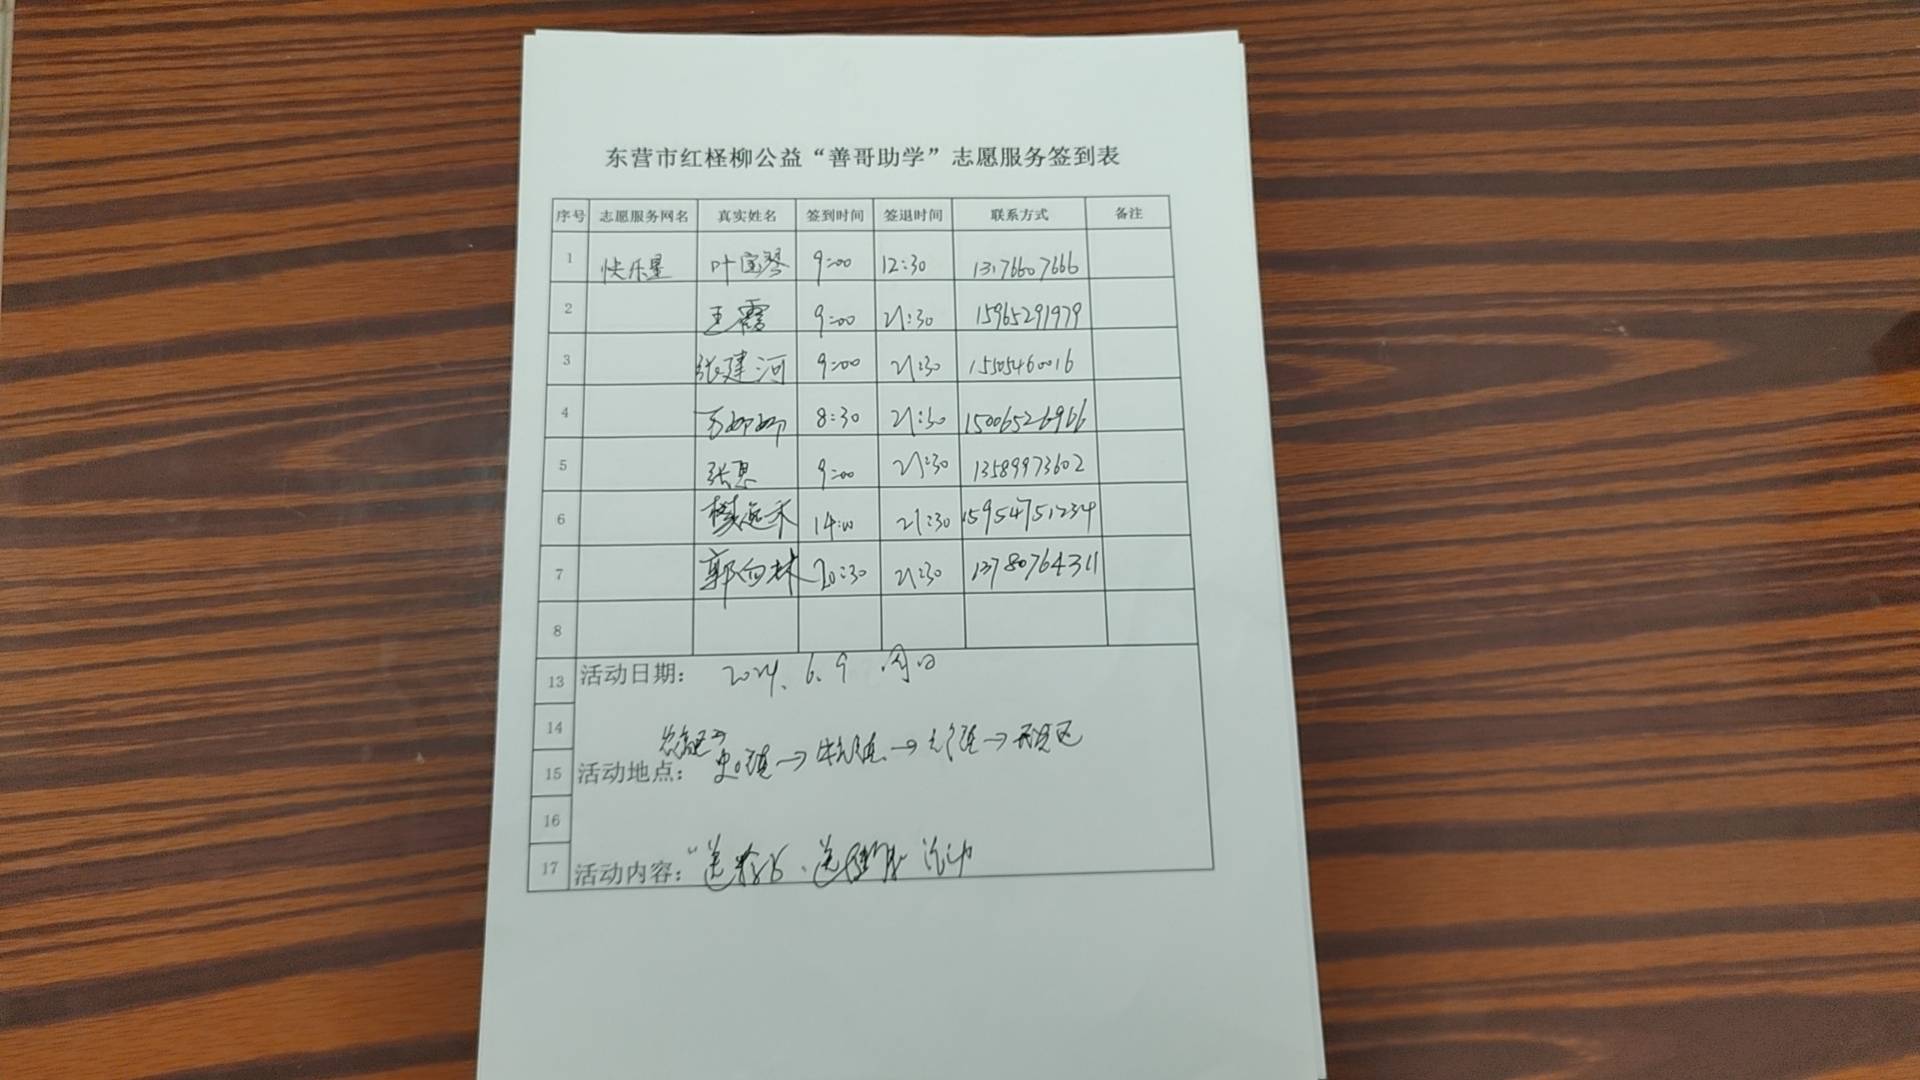 东营市红柽柳公益“善哥助学”志愿服务签到表
序号 志愿服务网名 真实姓名 签到时间 签退时间 联系方式 备注
1 快乐星 叶宝琴 9:00 12:30 13176607666
2 王霞 9:00 21:30 15965291979
3 张建河 9:00 21:30 15505460016
4 万娜娜 8:30 21:30 15006526966
5 张恩 9:00 21:30 13589973602
6 14:00 21:30 15954751234
7 郭向林 20:30 21:30 13780764311
8
13 活动日期: 2024.6.9 周日
14
15 活动地点: 史口镇→ → →开发区
16
17 活动内容: “送 、送 ”活动